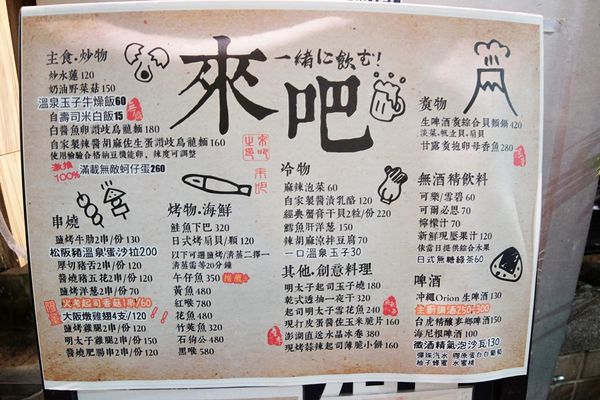 來吧
一緒に飲む!
主食.炒物
炒水蓮 120
奶油野菜菇 150
溫泉玉子牛燥飯60
自壽司米白飯15
白醬魚卵讚歧烏龍麵 180
自家製辣醬胡麻佐生蛋讚歧烏龍麵 160
使用檢驗合格納豆機能卵，辣度可調整
激推100%
滿載無敵蚵仔蛋260
串燒
鹽烤牛肋2串/份 130
松阪豬溫泉蜜沙拉200
厚切豬舌2串/份 120
醬燒豬五花2串/份 120
鹽烤洋蔥2串/份 70
火烤起司香菇1串/60
大阪墩雞翅4支/120
鹽烤雞腿2串/份 120
明太子雞腿2串/份 150
醬燒肥腸2串/份 120
烤物.海鮮
鮭魚下巴 320
日式烤扇貝/顆 120
以下可選鹽烤/清蒸二擇一
清蒸需等20分鐘
午仔魚 350
推薦
黃魚 480
紅喉 780
花魚 480
竹莢魚 320
石狗公 480
黑喉 580
冷物
麻辣泡菜 60
自家製醬漬乳酪 120
經典蟹膏干貝2粒/份 220
鱈魚肝洋蔥 150
辣胡麻涼拌豆腐 70
一口溫泉玉子30
其他.創意料理
明太子起司玉子燒 180
乾式透抽一夜干 320
起司明太子雪花魚 240
現打皮蛋醬佐玉米脆片 160
澎湖直送水晶冰卷 380
現烤蒜辣起司薄脆小餅 160
炙物
生啤酒炙綜合貝類鍋 420
淡菜、帆立貝、扇貝
甘露炙抱卵母香魚 280
無酒精飲料
可樂/雪碧 60
可爾必思 70
檸檬汁 70
新鮮現壓果汁 120
依當日提供綜合水果
日式無糖綠茶60
啤酒
沖繩Orion 生啤酒 130
主廚調酒250-300
台虎精釀多鄉啤酒100
海尼根啤酒 100
微酒精氣泡沙瓦130
彈珠汽水 膠原蛋白白葡萄
柚子蜂蜜 水蜜桃